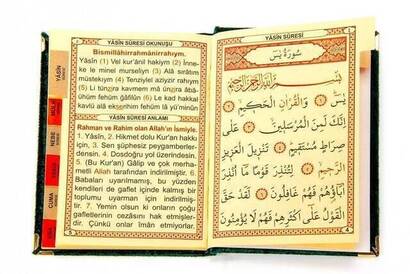 YÂSÎN SÛRESİ OKUNUŞU
Bismillâhirrahmânirrahıym.
Yâsîn (1) Vel kur'ânil hakiym (2) İnne-
ke le minel murseliyn (3) Alâ sırâtım
müstekıym (4) Tenziylel aziyzir rahıym
(5) Li tünzira kavmem mâ ünzira âbâ-
ühüm fehüm ğâfilûn (6) Le kad hakkal
kavlü alâ ekserihim fehüm lâ yü'minûn
YÂSÎN SÛRESİ ANLAMI
Rahman ve Rahim olan Allah'ın İsmiyle.
1. Yâsîn, 2. Hikmet dolu Kur'an hakkı
için, 3. Sen şüphesiz peygamberler-
densin. 4. Dosdoğru yol üzerindesin.
5. (Bu Kur'an) Gâlip ve çok merha-
metli Allah tarafından indirilmiştir. 6.
Babaları uyarılmamış, bu yüzden
kendileri de gaflet içinde kalmış bir
toplumu uyarman için indirilmiş-
tir. 7. Yemin olsun ki onların çoğu
gafletlerinin cezasını hak etmişler-
dir. Çünkü onlar îman etmiyorlar.
YÂSÎN
NEBE
CUMA
YÂSÎN SÛRESİ
سُورَةُ يٰسٓ
بِسْمِ اللّٰهِ الرَّحْمٰنِ الرَّحِيمِ
يٰسٓ ﴿١﴾ وَالْقُرْاٰنِ الْحَكِيمِ ﴿٢﴾
اِنَّكَ لَمِنَ الْمُرْسَلِينَ ﴿٣﴾ عَلٰى
صِرَاطٍ مُسْتَقِيمٍ ﴿٤﴾ تَنْزِيلَ الْعَزِيزِ
الرَّحِيمِ ﴿٥﴾ لِتُنْذِرَ قَوْمًا مَٓا اُنْذِرَ
اٰبَٓاؤُهُمْ فَهُمْ غَافِلُونَ ﴿٦﴾ لَقَدْ حَقَّ
الْقَوْلُ عَلٰٓى اَكْثَرِهِمْ فَهُمْ لَا يُؤْمِنُونَ
4